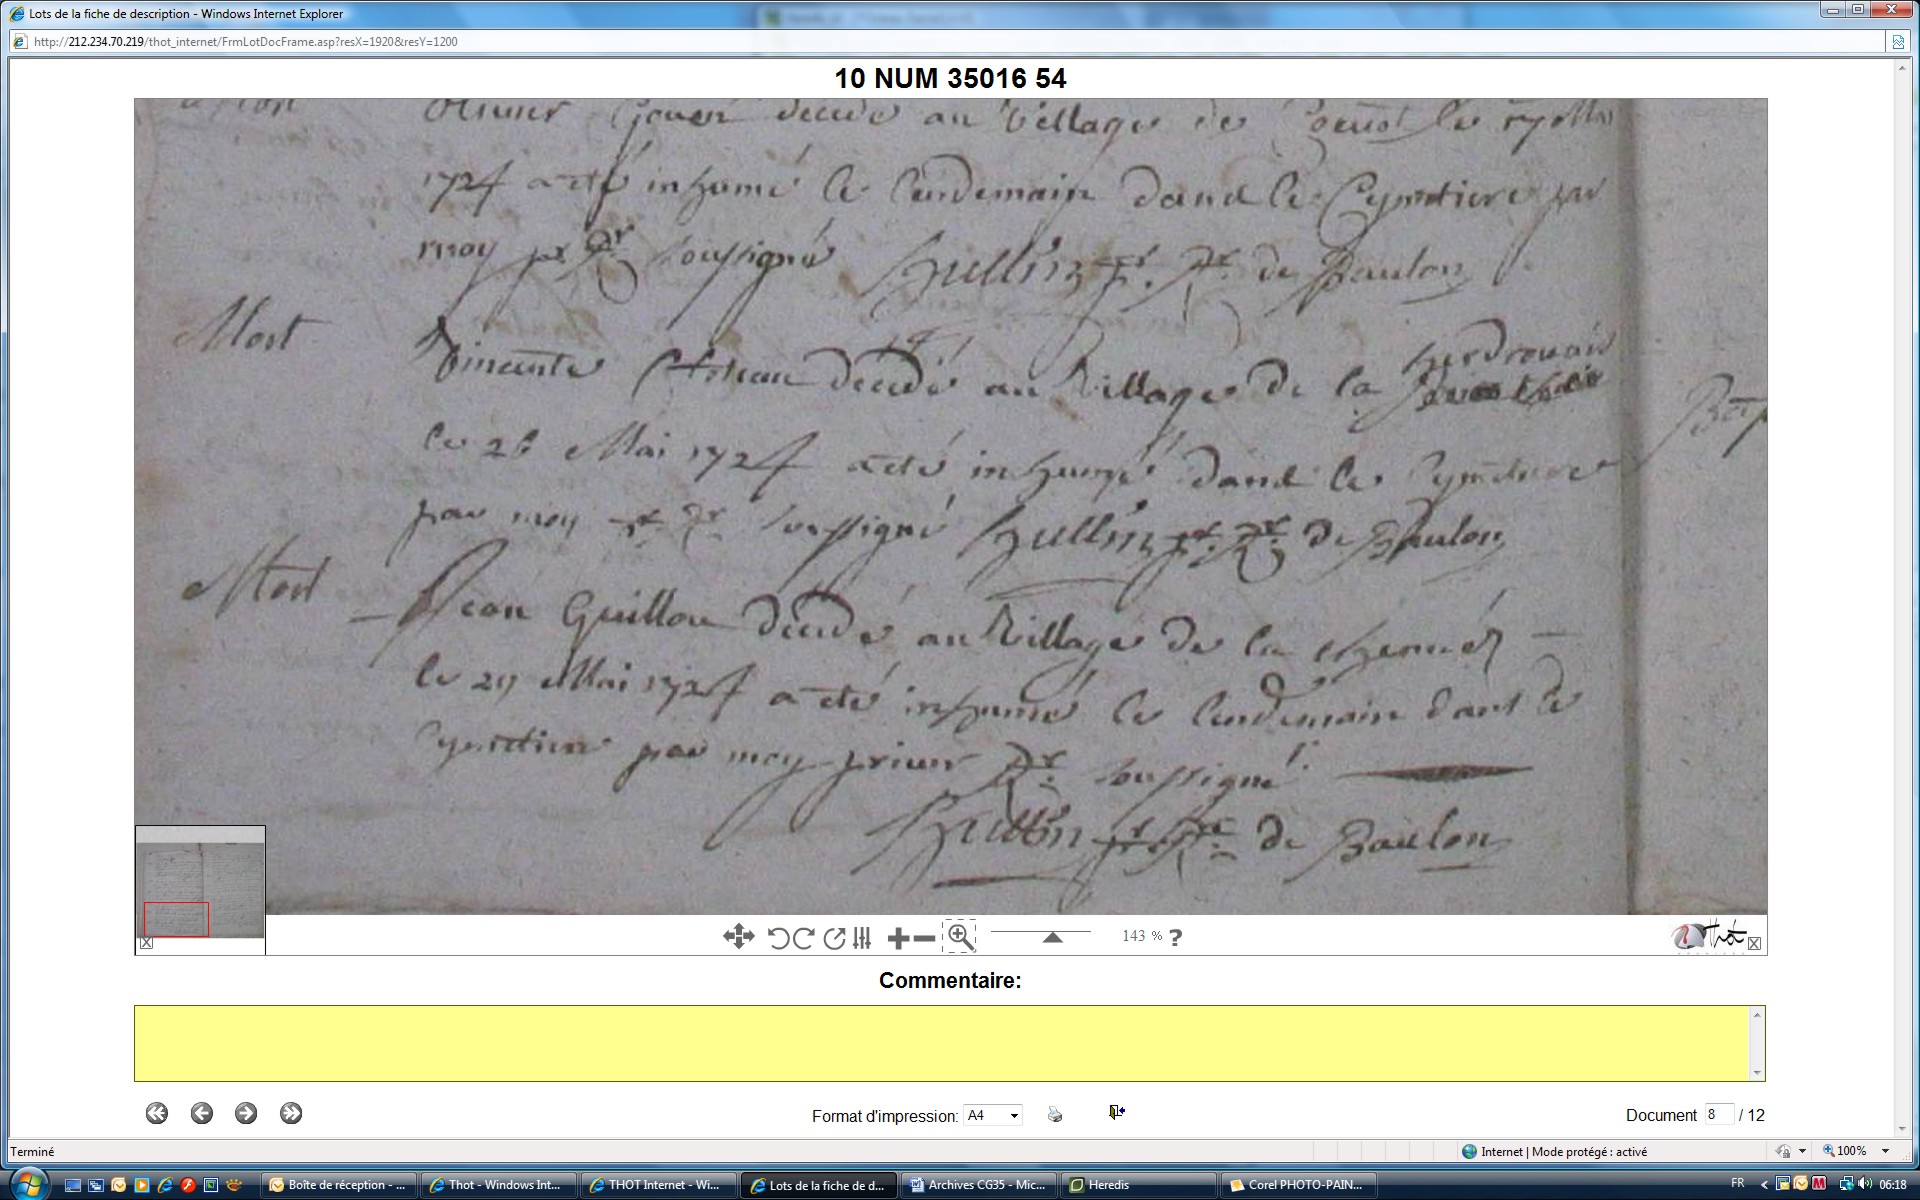 Lots de la fiche de description - Windows Internet Explorer
http://212.234.70.219/thot_internet/FrmLotDocFrame.asp?resX=1920&resY=1200
10 NUM 35016 54
Mort
Olivier decedé au Village de le
1724 a eté inhumé le lendemain dans le Cymetiere par
moy pr soussigné Hullin pr. de Baulon
Mort
Vincente decedé au Village de la
le 26 Mai 1724 a eté inhumé dans le Cymetiere
par moy soussigné Hullin pr. de Baulon
Mort
Jean Guillou decedé au Village de la
le 29 Mai 1724 a eté inhumé le lendemain dans le
Cymetiere par moy prieur soussigné
Hullin pr. de Baulon
Bap
143 % ?
Thot
Commentaire:
Format d'impression: A4
Document 8 / 12
Terminé
Internet | Mode protégé : activé
100%
Boîte de réception - ...
Thot - Windows Int...
THOT Internet - Wi...
Lots de la fiche de d...
Archives CG35 - Mic...
Heredis
Corel PHOTO-PAIN...
FR
06:18